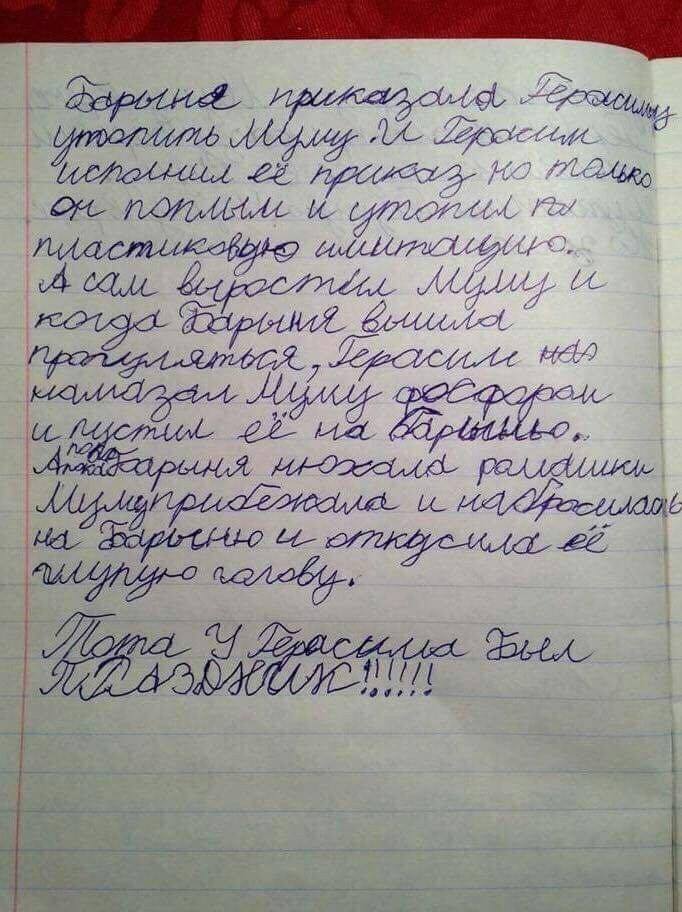 Барыня приказала Герасиму
утопить Муму. И Герасим
исполнил её приказ но только
он поплыл и утопил
пластиковую имитацию.
А сам выростил Муму и
когда Барыня вышла
прогуляться, Герасим
намазал Муму фосфором
и пустил её на Барыню.
А пока Барыня нюхала ромашки
Муму прибежала и набросилась
на Барыню и откусила её
глупую голову.
Тота У Герасима Был
ПРАЗДНИК!!!!!!